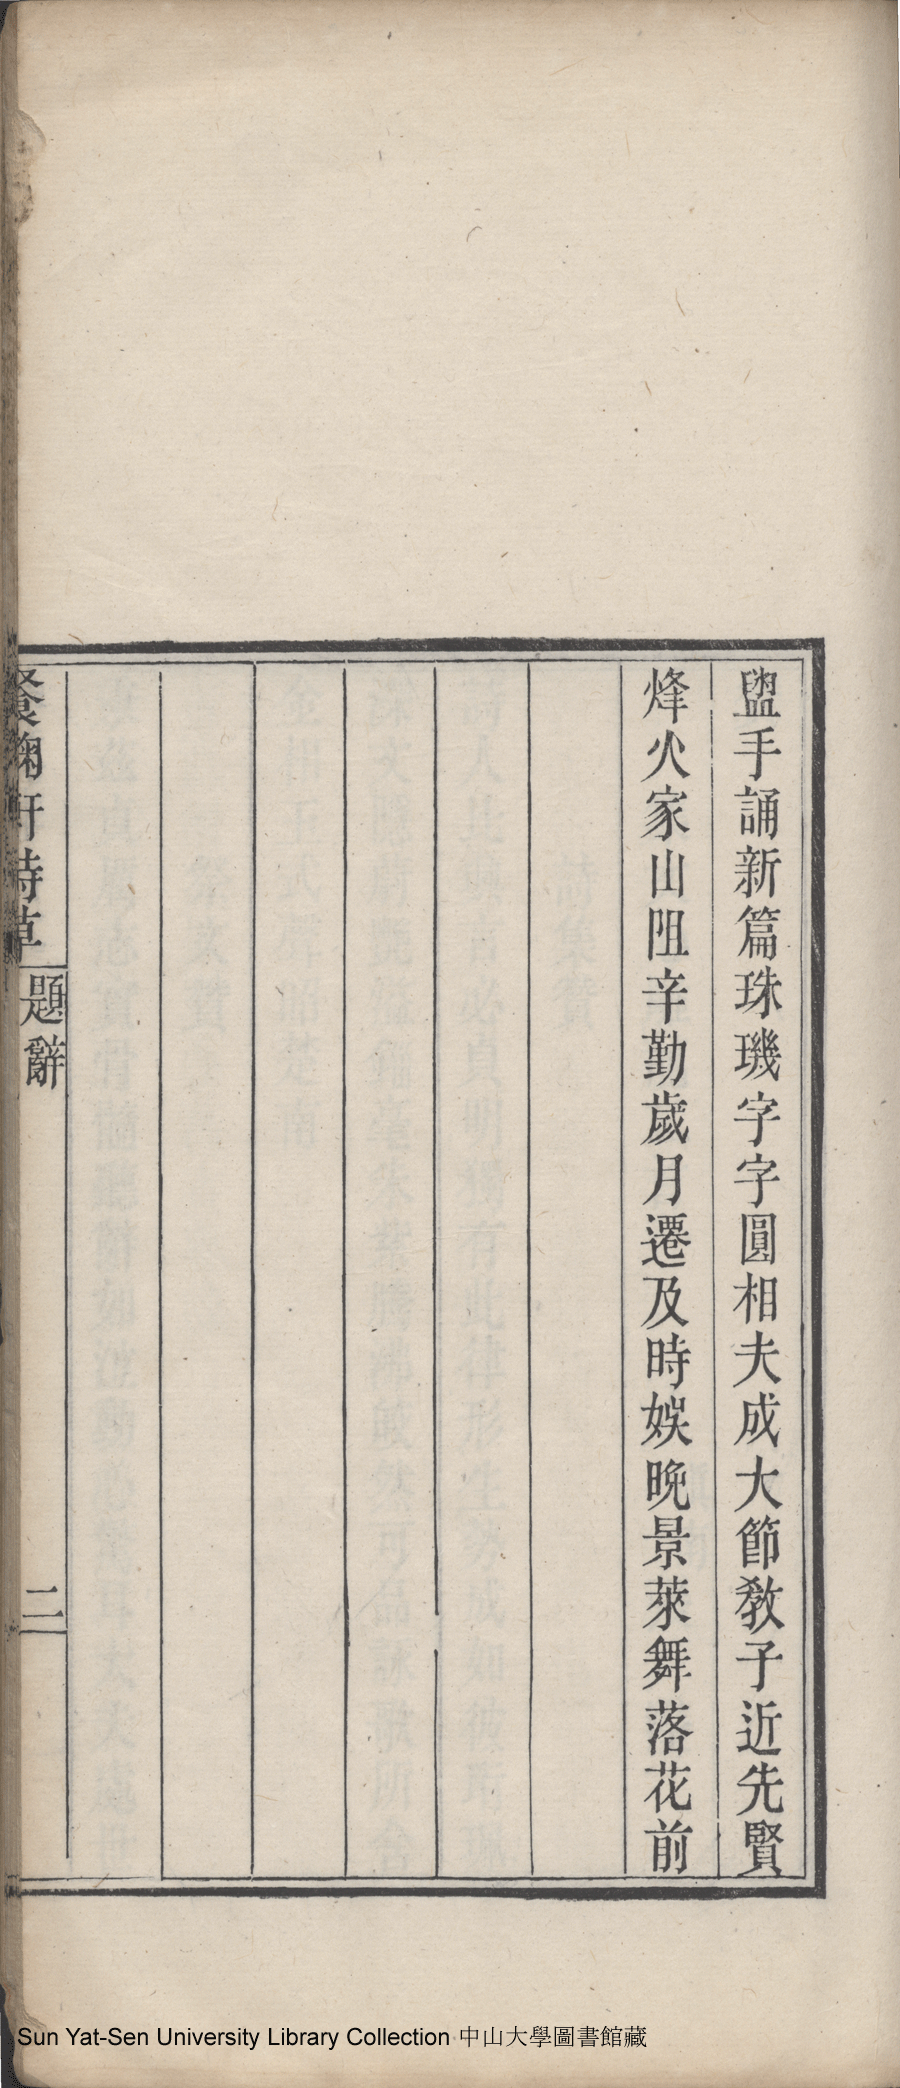 盥手誦新篇珠璣字字圓相夫成大節敎子近先賢
烽火家山阻辛勤歲月遷及時娛晚景萊舞落花前
餐菊軒詩草
題辭
二
Sun Yat-Sen University Library Collection 中山大學圖書館藏